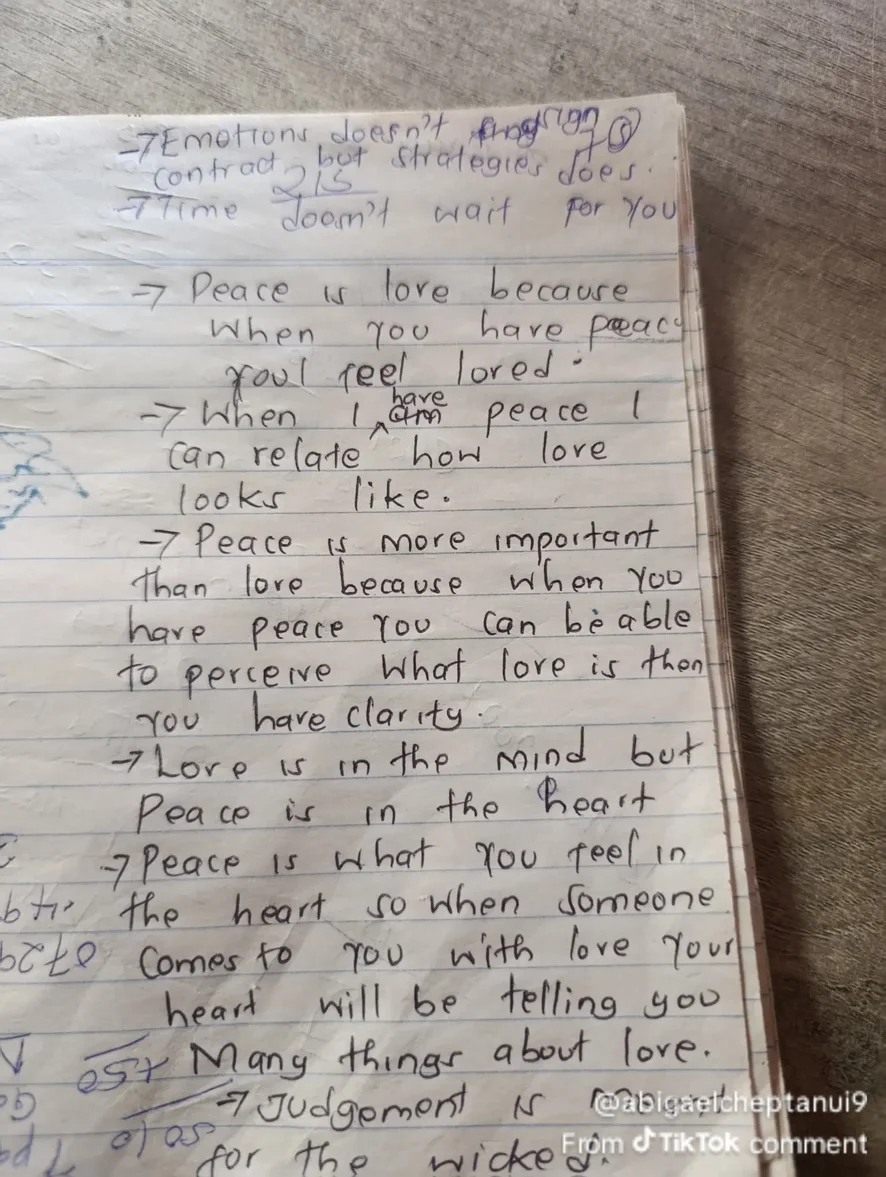 → Emotions doesn't sign
contract but strategies does.
215
→ Time doesn't wait for you
→ Peace is love because
when you have peac
youl feel loved.
→ When I have am peace I
can relate how love
looks like.
→ Peace is more important
than love because when you
have peace you can be able
to perceive what love is then
you have clarity.
→ Love is in the mind but
Peace is in the heart
→ Peace is what you feel in
the heart so when someone
comes to you with love your
heart will be telling you
Many things about love.
→ Judgement is
for the wicked.
@abigaelcheptanui9
From TikTok comment